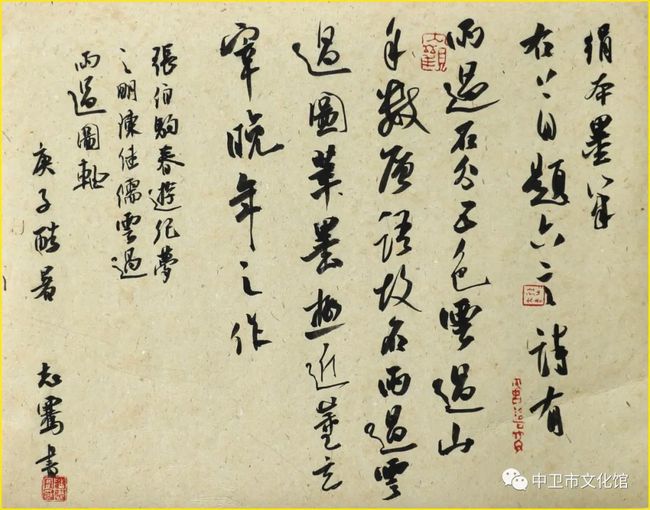 絹本墨筆
右上自題六言詩有
雨過石分五色雲過山
數層語故名雨過雲
過圖筆墨極近董玄
宰晚年之作
張伯駒春遊紀夢
之明陳继儒雲過
雨過圖軸
庚子酷暑
志書
中卫市文化馆